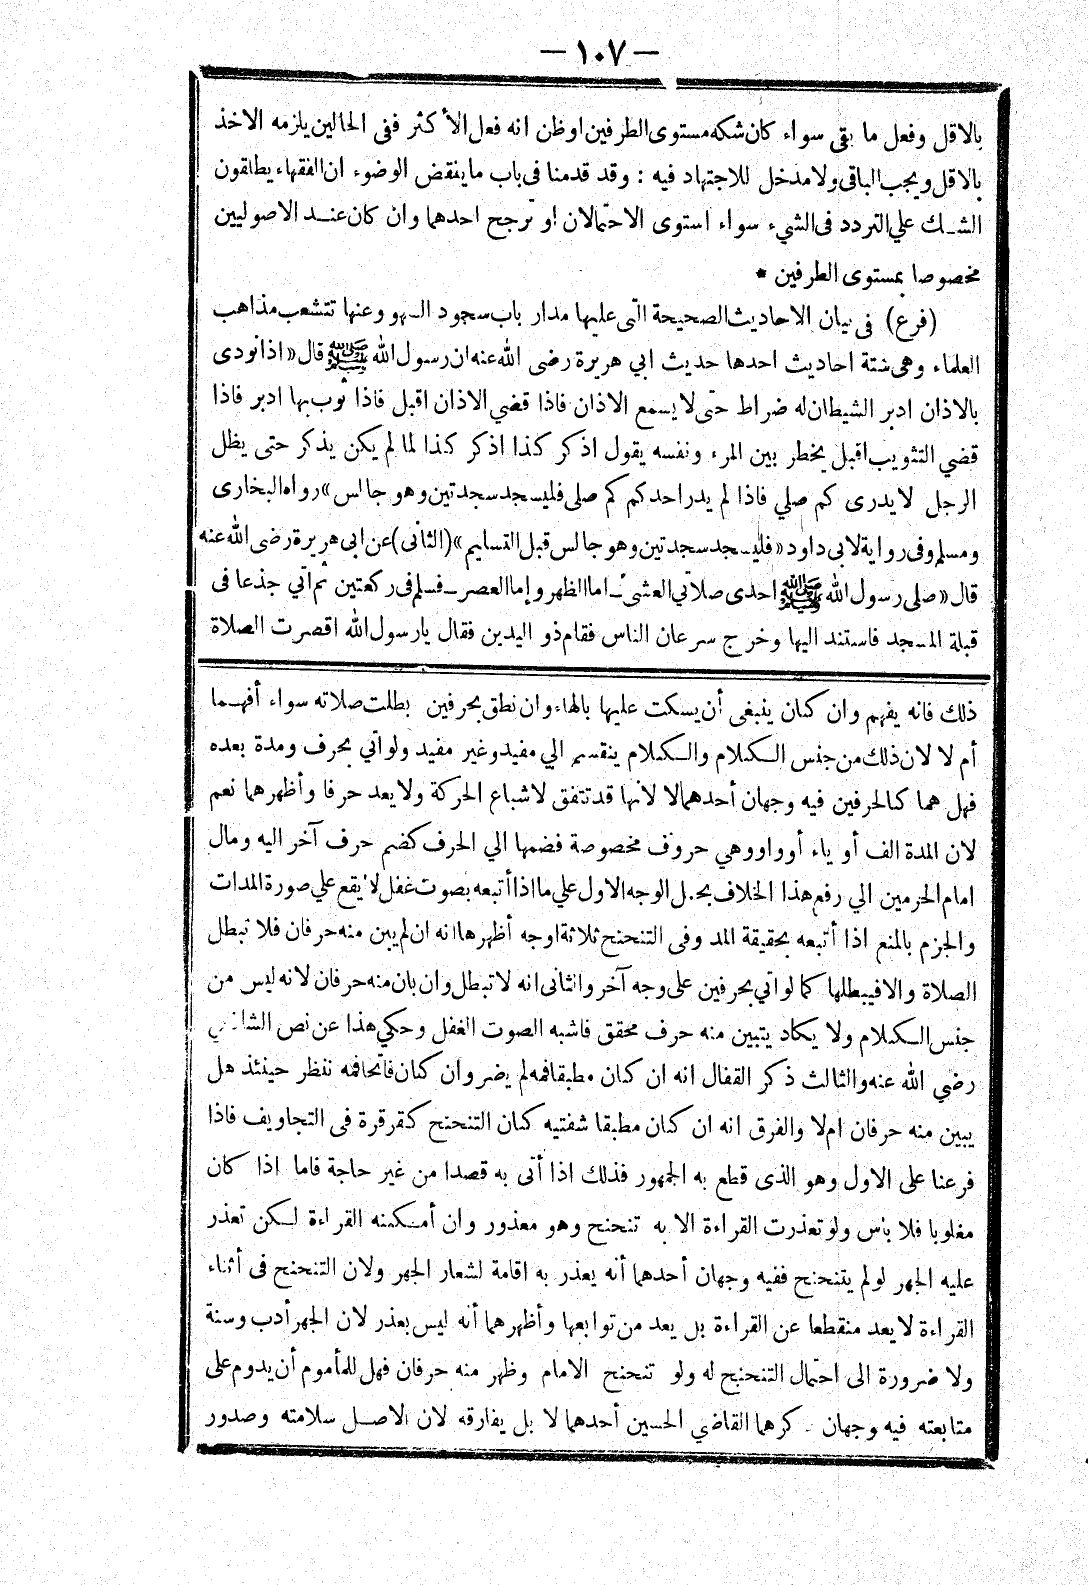 — ١٠٧ —
بالاقل وفعل ما بقى سواء كان شكه مستوى الطرفين او ظن انه فعل الأكثر ففى الحالين يلزمه الاخذ
بالاقل ويجب الباقى ولا مدخل للاجتهاد فيه : وقد قدمنا فى باب ما ينقض الوضوء ان الفقهاء يطلقون
الشك علي التردد فى الشيء سواء استوى الاحتمالان او ترجح احدهما وان كان عند الاصوليين
مخصوصا بمستوى الطرفين *
(فرع) فى بيان الاحاديث الصحيحة التى عليها مدار باب سجود السهو وعنها تتشعب مذاهب
العلماء وهى ستة احاديث احدها حديث ابي هريرة رضى الله عنه ان رسول الله ﷺ قال «اذا نودى
بالاذان ادبر الشيطان له ضراط حتى لا يسمع الاذان فاذا قضي الاذان اقبل فاذا ثوب بها ادبر فاذا
قضي التثويب اقبل يخطر بين المرء ونفسه يقول اذكر كذا اذكر كذا لما لم يكن يذكر حتى يظل
الرجل لا يدرى كم صلي فاذا لم يدر احدكم كم صلى فليسجد سجدتين وهو جالس» رواه البخارى
ومسلم وفى رواية لابى داود «فليسجد سجدتين وهو جالس قبل التسليم» (الثانى) عن ابى هريرة رضى الله عنه
قال «صلى رسول الله ﷺ احدى صلاتي العشى ـ اما الظهر وإما العصر ـ فسلم فى ركعتين ثم اتي جذعا فى
قبلة المسجد فاستند اليها وخرج سرعان الناس فقام ذو اليدين فقال يا رسول الله اقصرت الصلاة
ذلك فانه يفهم وان كان ينبغى أن يسكت عليها بالهاء وان نطق بحرفين بطلت صلاته سواء أفهما
أم لا لان ذلك من جنس الكلام والكلام ينقسم الي مفيد وغير مفيد ولو اتي بحرف ومدة بعده
فهل هما كالحرفين فيه وجهان أحدهما لا لانها قد تتفق لاشباع الحركة ولا يعد حرفا وأظهرهما نعم
لان المدة الف أو ياء أو واو وهي حروف مخصوصة فضمها الي الحرف كضم حرف آخر اليه ومال
امام الحرمين الي رفع هذا الخلاف بحمل الوجه الاول علي ما اذا أتبعه بصوت غفل لا يقع علي صورة المدات
والجزم بالمنع اذا أتبعه بحقيقة المد وفى التنحنح ثلاثة اوجه أظهرها انه ان لم يبن منه حرفان فلا تبطل
الصلاة والا فيبطلها كما لو اتي بحرفين على وجه آخر والثانى انه لا تبطل وان بان منه حرفان لانه ليس من
جنس الكلام ولا يكاد يتبين منه حرف محقق فاشبه الصوت الغفل وحكي هذا عن نص الشافعي
رضي الله عنه والثالث ذكر القفال انه ان كان مطبقا فمه لم يضر وان كان فاتحا فمه ننظر حينئذ هل
يبين منه حرفان ام لا والفرق انه ان كان مطبقا شفتيه كان التنحنح كقرقرة فى التجاويف فاذا
فرعنا على الاول وهو الذى قطع به الجمهور فذلك اذا أتى به قصدا من غير حاجة فاما اذا كان
مغلوبا فلا بأس ولو تعذرت القراءة الا به تنحنح وهو معذور وان أمكنه القراءة لكن تعذر
عليه الجهر لو لم يتنحنح ففيه وجهان أحدهما أنه يعذر به اقامة لشعار الجهر ولان التنحنح فى أثناء
القراءة لا يعد منقطعا عن القراءة بل يعد من توابعها وأظهرهما أنه ليس بعذر لان الجهر أدب وسنة
ولا ضرورة الى احتمال التنحنح له ولو تنحنح الامام وظهر منه حرفان فهل للمأموم أن يدوم على
متابعته فيه وجهان ذكرهما القاضي الحسين أحدهما لا بل يفارقه لان الاصل سلامته وصدور